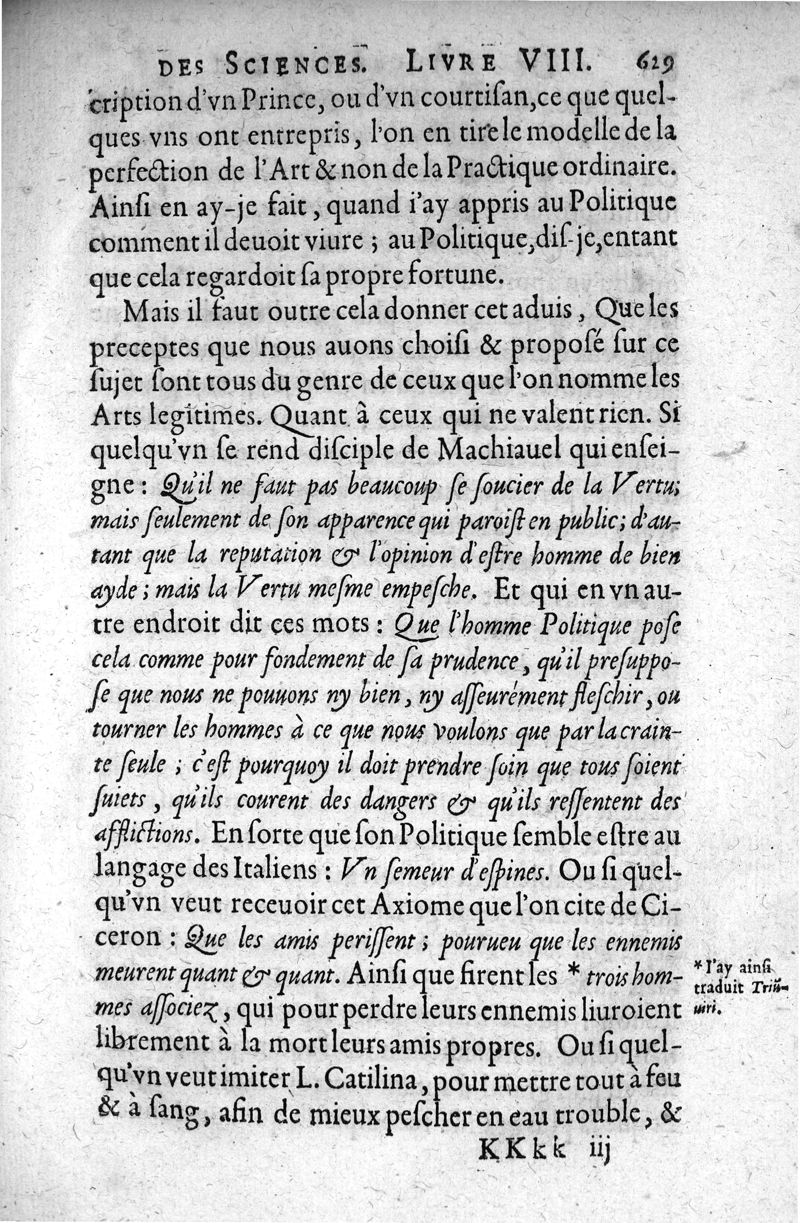 DES SCIENCES. LIVRE VIII. 629
cription d'vn Prince, ou d'vn courtiſan, ce que quel-
ques vns ont entrepris, l'on en tire le modelle de la
perfection de l'Art & non de la Practique ordinaire.
Ainſi en ay-je fait, quand i'ay appris au Politique
comment il deuoit viure ; au Politique, diſ-je, entant
que cela regardoit ſa propre fortune.
Mais il faut outre cela donner cet aduis, Que les
preceptes que nous auons choiſi & propoſé ſur ce
ſujet ſont tous du genre de ceux que l'on nomme les
Arts legitimes. Quant à ceux qui ne valent rien. Si
quelqu'vn ſe rend diſciple de Machiauel qui enſei-
gne : Qu'il ne faut pas beaucoup ſe ſoucier de la Vertu;
mais ſeulement de ſon apparence qui paroiſt en public ; d'au-
tant que la reputation & l'opinion d'eſtre homme de bien
ayde ; mais la Vertu meſme empeſche. Et qui en vn au-
tre endroit dit ces mots : Que l'homme Politique poſe
cela comme pour fondement de ſa prudence, qu'il preſuppo-
ſe que nous ne pouuons ny bien, ny aſſeurément fleſchir, ou
tourner les hommes à ce que nous voulons que par la crain-
te ſeule ; c'eſt pourquoy il doit prendre ſoin que tous ſoient
ſuiets, qu'ils courent des dangers & qu'ils reſſentent des
afflictions. En ſorte que ſon Politique ſemble eſtre au
langage des Italiens : Vn ſemeur d'eſpines. Ou ſi quel-
qu'vn veut receuoir cet Axiome que l'on cite de Ci-
ceron : Que les amis periſſent ; pourueu que les ennemis
meurent quant & quant. Ainſi que firent les * trois hom-
mes aſſociez, qui pour perdre leurs ennemis liuroient
librement à la mort leurs amis propres. Ou ſi quel-
qu'vn veut imiter L. Catilina, pour mettre tout à feu
& à ſang, afin de mieux peſcher en eau trouble, &
KKkk iij
* I'ay ainſi
traduit Triū-
uiri.